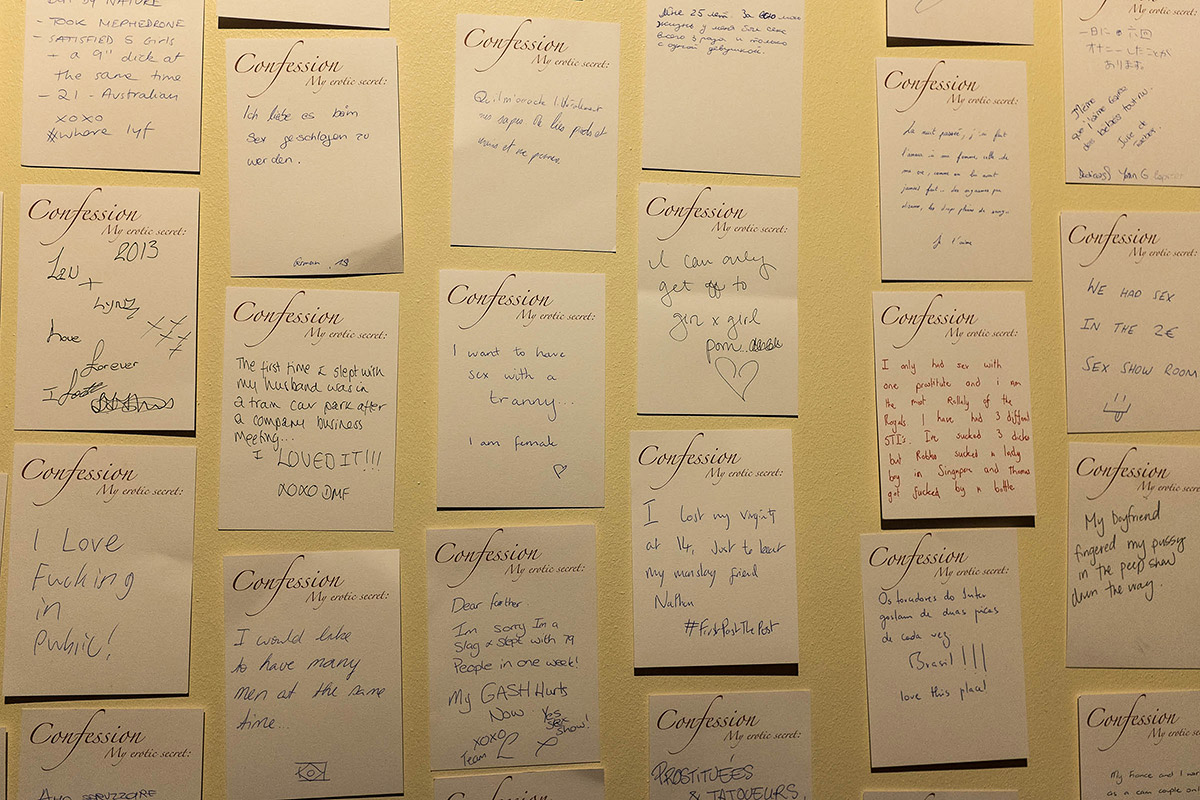 - TOOK MEPHEDRONE
- SATISFIED 5 GIRLS
+ a 9" dick at
the same time
- 21 - Australian
xoxo
#whore lyf
Confession
My erotic secret:
2013
+
have
forever
I
Confession
My erotic secret:
I Love
Fucking
in
Public!
Confession
My erotic secret:
Confession
My erotic secret:
Ich liebe es beim
Sex geschlagen zu
werden.
19
Confession
My erotic secret:
The first time I slept with
my husband was in
a tram car park after
a company business
meeting...
I LOVED IT!!!
XOXO DMF
Confession
My erotic secret:
I would like
to have many
men at the same
time...
Confession
My erotic secret:
Confession
My erotic secret:
I want to have
sex with a
tranny...
I am female
Confession
My erotic secret:
Dear father
I'm sorry I'm a
Slag & slept with 79
People in one week!
My GASH Hurts
Now Yes
sex
show!
xoxo
Team L
Confession
мне 25 лет. За всю мою
жизнь у меня был секс
всего 3 раза и только
с одной девушкой.
Confession
My erotic secret:
I can only
get off to
girl x girl
porn...
Confession
My erotic secret:
I lost my virginity
at 14, Just to beat
my friend
Nathan
#FirstPastThePost
Confession
My erotic secret:
PROSTITUÉES
& TATOUEURS,
Confession
My erotic secret:
La nuit passée, j'ai fait
l'amour à ma femme, celle de
ma vie, comme on l'a
jamais fait
Je t'aime
Confession
My erotic secret:
I only had sex with
one prostitute and i am
the most of the
Royals I have had 3 different
STI's. I've sucked 3 dicks
but Robbo sucked a lady
boy in Singapore and Thomas
got fucked by a bottle
Confession
My erotic secret:
Os toradores do Inter
gostam de duas picas
de cada vez
Brasil!!!
love this place!
My erotic secret:
一日に六回
オナニーしたことが
あります。
Confession
My erotic secret:
WE HAD SEX
IN THE 2€
SEX SHOW ROOM
Confession
My erotic secret:
My boyfriend
fingered my pussy
in the peep show
down the way.
Confession
My erotic secret:
My fiance and I
as a cam couple on